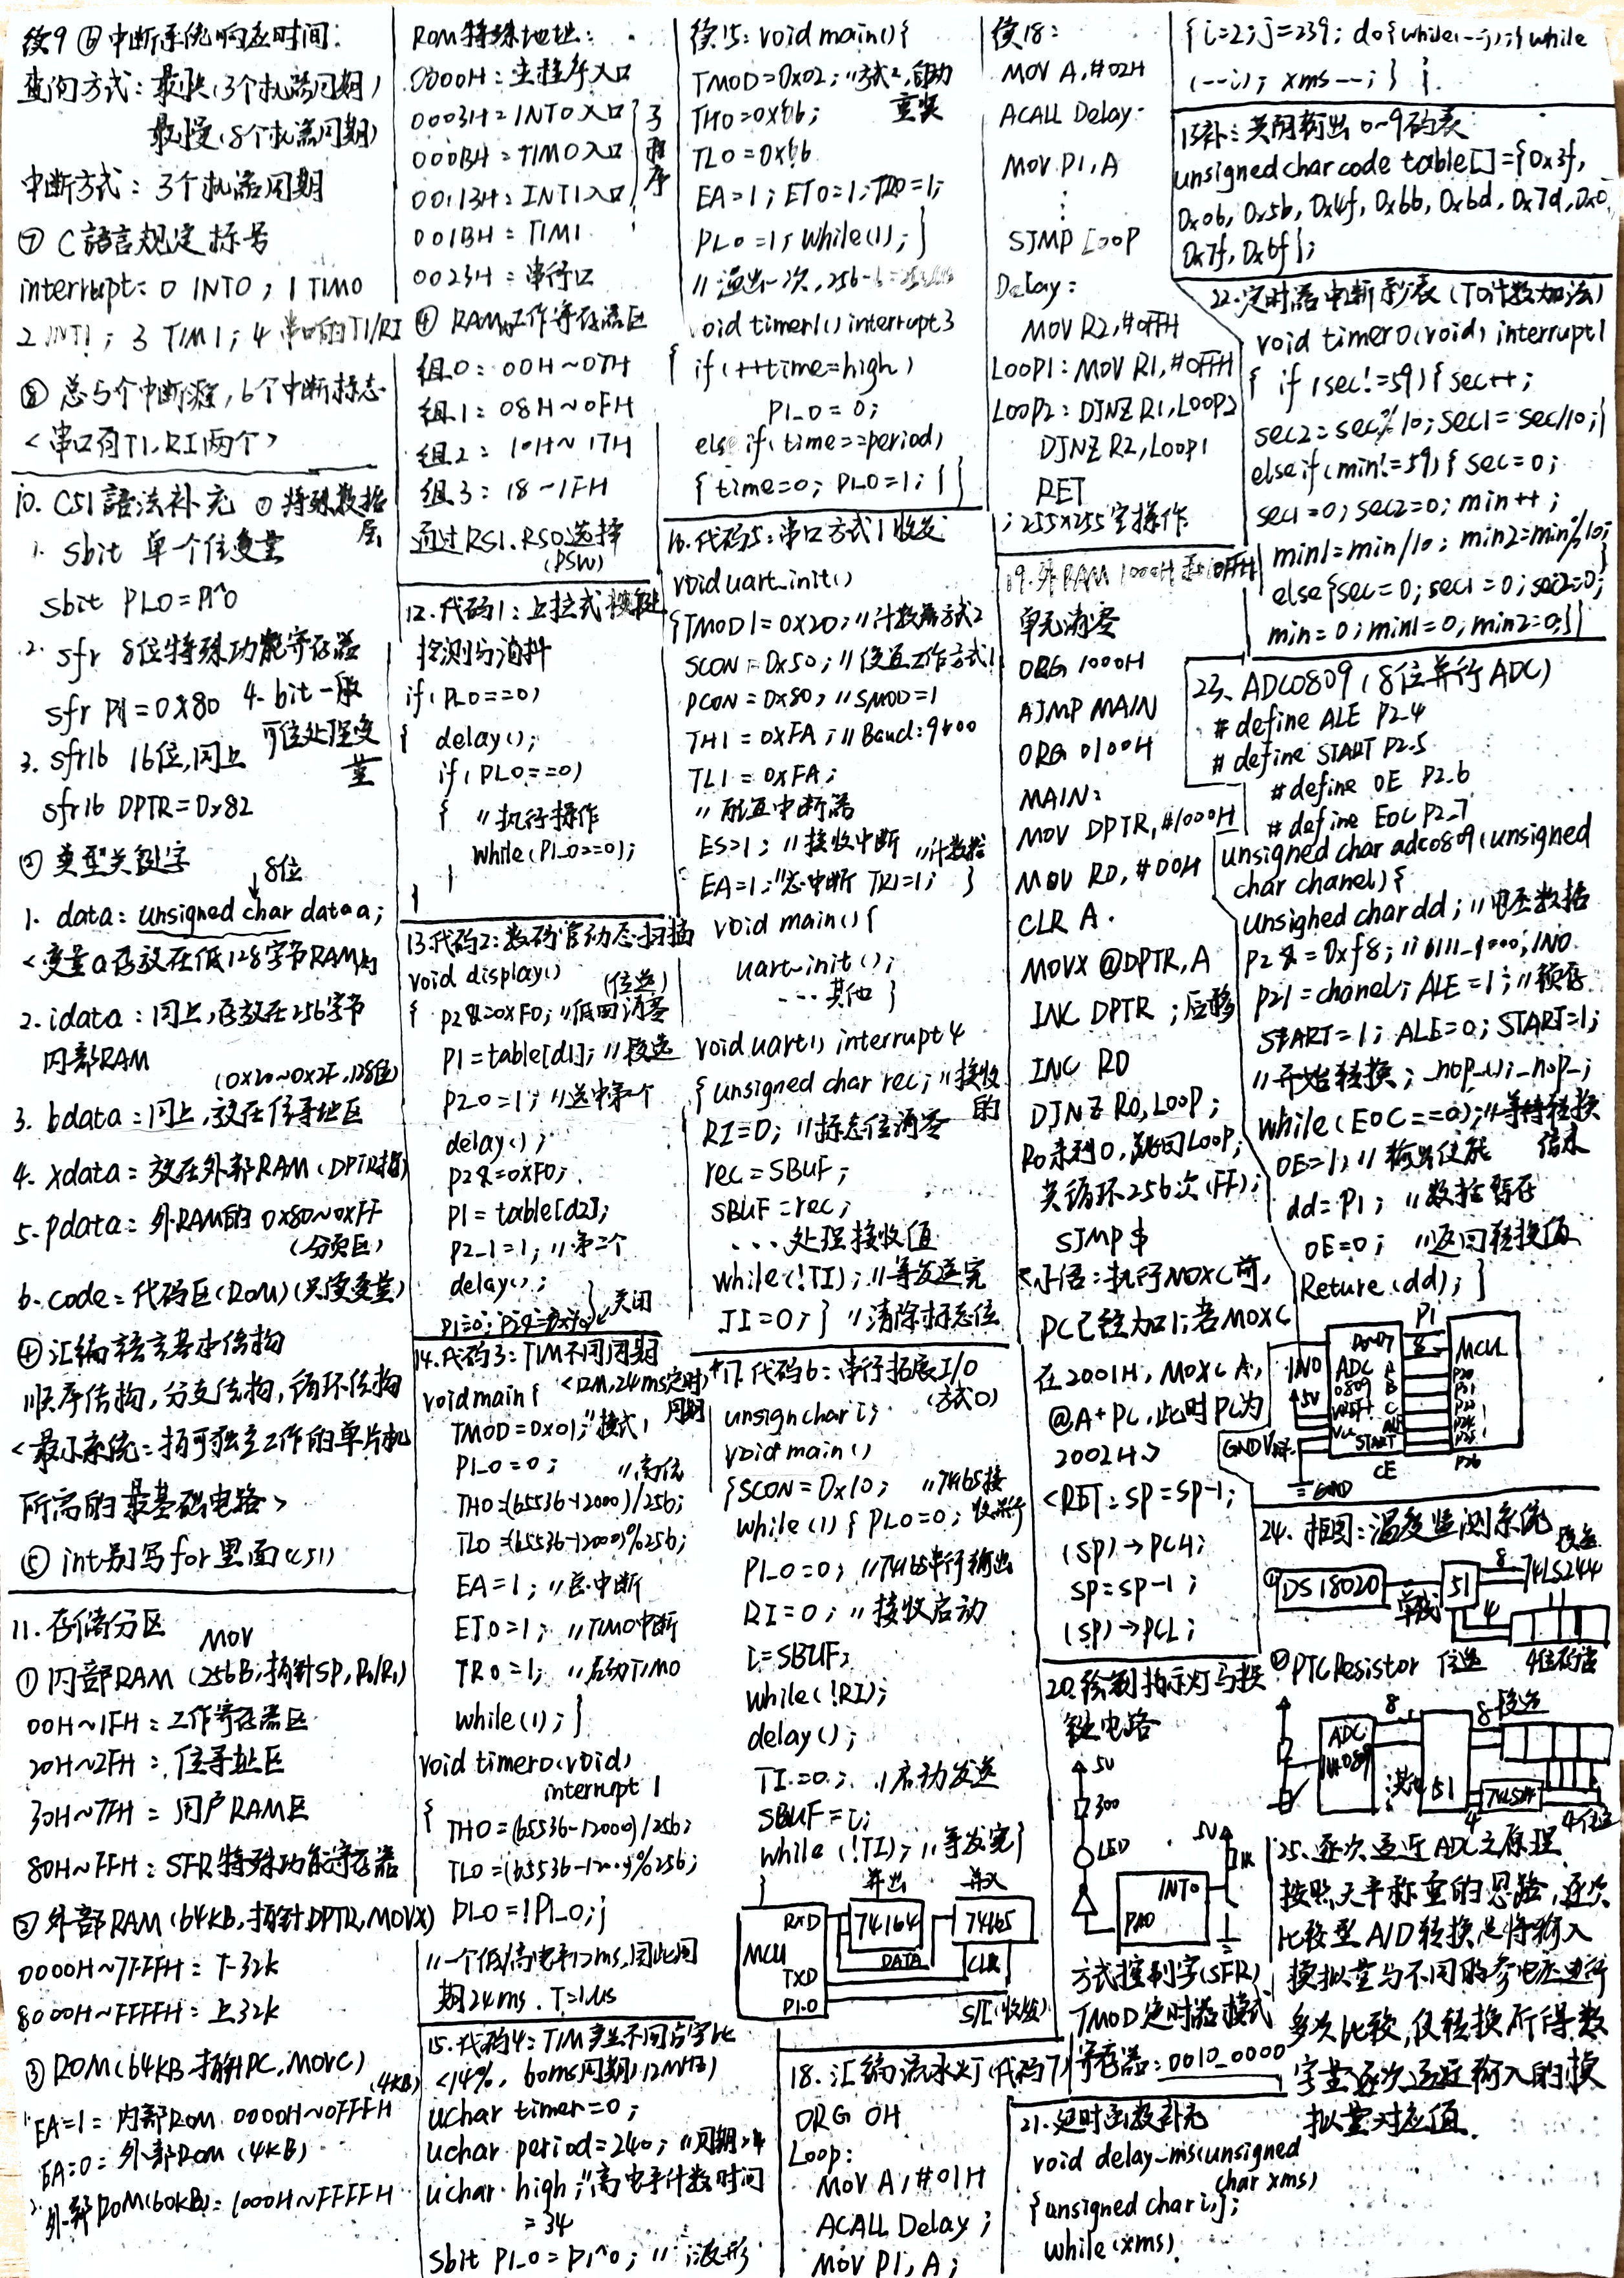 续9 ⑥中断系统响应时间:
查询方式: 最快(3个机器周期)
最慢(8个机器周期)
中断方式: 3个机器周期
⑦ C語言规定标号
interrupt: 0 INT0; 1 TIM0
2 INT1; 3 TIM1; 4 串口的TI/RI
⑧ 总5个中断源, 6个中断标志
<串口有TI,RI两个>
10. C51 語法补充 ①特殊数据
1. sbit 单个位变量
sbit P1_0=P1^0
2. sfr 8位特殊功能寄存器
sfr P1=0x80 4. bit 一般
可位处理变量
3. sfr16 16位,同上
sfr16 DPTR=0x82
② 类型关键字
↓8位
1. data: unsigned char data a;
<变量a存放在低128字节RAM内
2. idata: 同上,存放在256字节
内部RAM
(0x20~0x2F,128位)
3. bdata: 同上,放在位寻址区
4. xdata: 放在外部RAM(DPTR指)
5. pdata: 外RAM的 0x80~0xFF
(分页区)
6. code: 代码区(ROM)(只读变量)
④汇编語言基本结构
顺序结构,分支结构,循环结构
<最小系统: 指可独立工作的单片机
所需的最基础电路>
⑤ int别写for里面(C51)
11. 存储分区
MOV
① 内部RAM (256B,指针SP,R0/R1)
00H~1FH: 工作寄存器区
20H~2FH: 位寻址区
30H~7FH = 用户RAM区
80H~FFH: SFR特殊功能寄存器
② 外部RAM(64KB,指针DPTR,MOVX)
0000H~7FFFH: 下32k
8000H~FFFFH: 上32k
③ ROM(64KB 指针PC,MOVC)
(4KB)
1. EA=1: 内部ROM 0000H~0FFFH
EA=0: 外部ROM (4KB)
2. 外部ROM(60KB): 1000H~FFFFH
ROM特殊地址:
0000H: 主程序入口
0003H: INT0入口
000BH: TIM0入口
0013H: INT1入口
子程序
001BH: TIM1
0023H: 串行口
④ RAM内工作寄存器区
组0: 00H~07H
组1: 08H~0FH
组2: 10H~17H
组3: 18~1FH
通过RS1,RS0选择
(PSW)
12. 代码1: 上拉式按键
检测与消抖
if(P1_0==0)
{ delay();
if(P1_0==0)
{ //执行操作
while(P1_0==0);
}
}
13.代码2: 数码管动态扫描
void display()
(位选)
{ P2&=0xF0; //低四清零
P1=table[d1]; //段选
P2_0=1; //选中第一个
delay();
P2&=0xF0;
P1=table[d2];
P2_1=1; //第二个
delay();
关闭
14.代码3: TIM不同周期
void main{ <12M,24ms定时周期
TMOD=0x01; //模式1
P1_0=0; //高位
TH0=(65536-12000)/256;
TL0=(65536-12000)%256;
EA=1; //总中断
ET0=1; //TIM0中断
TR0=1; //启动TIM0
while(1);}
void timer0(void)
interrupt 1
{ TH0=(65536-12000)/256;
TL0=(65536-12000)%256;
P1_0=!P1_0;}
//一个低/高电平12ms,因此周
期24ms. T=1us
15.代码4: TIM产生不同占空比
<14%, 60ms周期, 12MHz)
uchar timer=0;
uchar period=240; //周期
uchar high; //高电平计数时间
=34
sbit P1_0=P1^0; //波形
续15: void main(){
TMOD=0x02; //方式2,自动
重装
TH0=0x06;
TL0=0x06
EA=1; ET0=1; TR0=1;
P1_0=1; while(1);}
//溢出一次,
void timer1() interrupt 3
{ if(++time=high)
P1_0=0;
else if(time==period)
{ time=0; P1_0=1; }}
16.代码5: 串口方式1收发
void uart_init()
{TMOD1=0x20; //计数器方式2
SCON=0x50; //设置工作方式1
PCON=0x80; //SMOD=1
TH1=0xFA; //Baud:9600
TL1=0xFA;
//配置中断器
ES=1; //接收中断 //计数器
EA=1; //总中断 TR1=1; }
void main(){
uart_init();
...其他 }
void uart() interrupt 4
{unsigned char rec; //接收的
RI=0; //标志位清零
rec=SBUF;
SBUF=rec;
...处理接收值
while(!TI); //等发送完
TI=0; } //清除标志位
17.代码6: 串行拓展I/O
(方式0)
unsign char i;
void main()
{SCON=0x10; //74165接
while(1){ P1_0=0; 收并行
P1_0=0; //74165串行输出
RI=0; //接收启动
i=SBUF;
while(!RI);
delay();
TI=0; //启动发送
SBUF=i;
while(!TI); //等发完}
}
并出 并入
MCU RXD 74164 74165
DATA CLR
TXD
P1.0
S/L(收发)
18.汇编流水灯(代码7)
ORG 0H
Loop:
MOV A,#01H
ACALL Delay;
MOV P1,A;
续18:
MOV A,#02H
ACALL Delay:
MOV P1,A
⋮
SJMP Loop
Delay:
MOV R2,#0FFH
LOOP1: MOV R1,#0FFH
LOOP2: DJNZ R1,LOOP2
DJNZ R2,LOOP1
RET
; 255x255空操作
19.外RAM 1000H 到10FFH
单元清零
ORG 1000H
AJMP MAIN
ORG 0100H
MAIN:
MOV DPTR,#1000H
MOV R0,#00H
CLR A.
MOVX @DPTR,A
INC DPTR ;后移
INC R0
DJNZ R0,LOOP;
R0未到0,跳回LOOP;
共循环256次(FF);
SJMP $
<小语: 执行MOXC前,
PC已经加1;若MOXC
在2001H, MOXC A,
@A+PC,此时PC为
2002H>
<RET: SP=SP-1;
(SP)→PCH;
SP=SP-1;
(SP)→PCL;
20.绘制指示灯与按
键电路
5V
300
LED
5V
1K
INT0
PA0
方式控制字(SFR)
TMOD定时器模式
寄存器: 0010_0000
21.延时函数补充
void delay_ms(unsigned
char xms)
{unsigned char i,j;
while(xms)
{i=2;j=239; do{while(--j);}while
(--i); xms--; } }
13补: 共阴输出0~9码表
unsigned char code table[]={0x3f,
0x06, 0x5b, 0x4f, 0x66, 0x6d, 0x7d, 0x0
0x7f, 0x6f};
22.定时器中断秒表(T0计数加法)
void timer0(void) interrupt 1
{ if(sec!=59){ sec++;
sec2=sec%10; sec1=sec/10;}
else if(min!=59){ sec=0;
sec1=0; sec2=0; min++;
min1=min/10; min2=min%10;
else{sec=0; sec1=0; sec2=0;
min=0; min1=0; min2=0;}}
23. ADC0809 (8位并行ADC)
#define ALE P2_4
#define START P2_5
#define OE P2_6
#define EOC P2_7
unsigned char adc0809(unsigned
char chanel){
unsighed char dd; //电压数据
P2&=0xf8; //
P21=chanel; ALE=1; //锁存
START=1; ALE=0; START=1;
//开始转换; _nop_(); _nop_;
while(EOC==0); //等待转换
结束
OE=1; //输出使能
dd=P1; //数据暂存
OE=0; //返回转换值
Reture(dd); }
P1
D0~D7 8 MCU
IN0 ADC 0809 A B C
5V
START
GND
OE P26
24. 框图: 温度监测系统
① DS18020 单线 51 8 段选 74LS244
4
位选 4位码管
② PTC Resistor
ADC 0809 8 51 8 段选
4 4位选
25.逐次逼近ADC之原理
按照天平称重的思路,逐次
比较型A/D转换是将输入
模拟量与不同的参电压进行
多次比较,仅转换所得数
字量逐次逼近输入的模
拟量对应值.